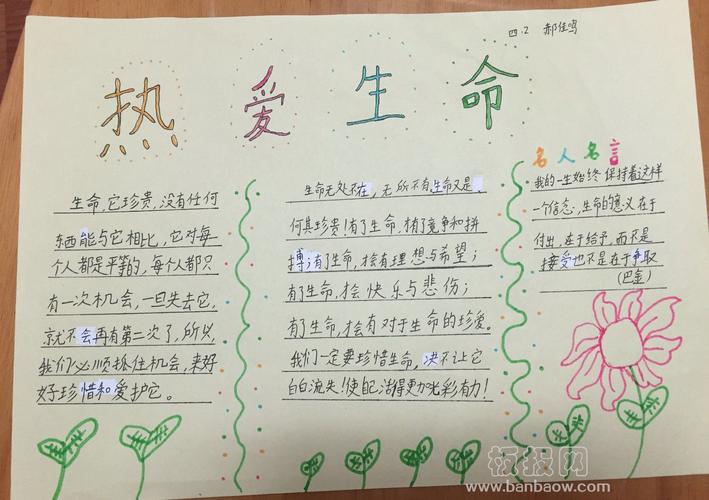 四.2 郝佳鸣
热爱生命
生命,它珍贵,没有任何
东西能与它相比,它对每
个人都是平等的,每个人都只
有一次机会,一旦失去它,
就不会再有第二次了,所以
我们必顺抓住机会,来好
好珍惜和爱护它。
生命无处不在,无所不有.生命又是
何其珍贵!有了生命,才有竞争和拼
搏;有了生命,才会有理想与希望;
有了生命,才会快乐与悲伤;
有了生命,才会有对于生命的珍爱。
我们一定要珍惜生命,决不让它
白白流失!使配活得更加光彩有力!
名人名言
我的一生始终保持着这样
一个信念,生命的意义在于
付出,在于给予,而不是
接受也不是在于争取
(巴金)
板报网
www.banbaow.com